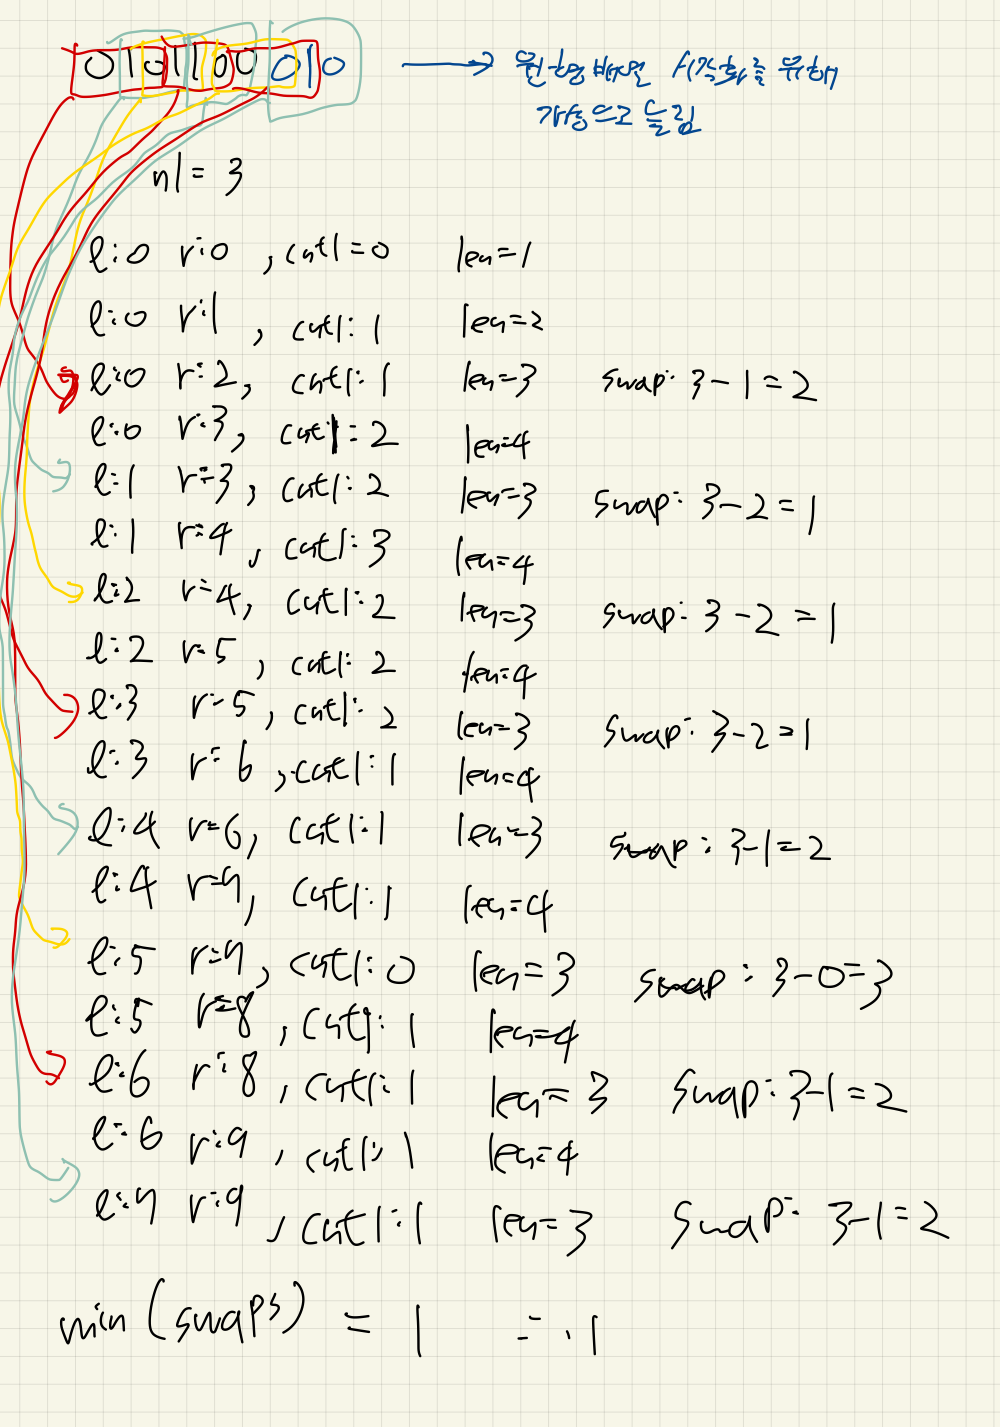 0101100 010 → 원형 배열 시각화를 위해
가상으로 늘림
n1 = 3
l:0 r:0 , cnt1=0 len=1
l:0 r:1 , cnt1: 1 len=2
l:0 r:2, cnt1:1 len=3 swap: 3-1=2
l:0 r:3, cnt1=2 len=4
l=1 r=3, cnt1:2 len=3 swap: 3-2=1
l:1 r:4, cnt1:3 len=4
l:2 r=4, cnt1:2 len=3 swap: 3-2=1
l:2 r:5, cnt1:2 len=4
l:3 r:5, cnt1:2 len=3 swap: 3-2=1
l:3 r:6, cnt1:1 len=4
l:4 r=6, cnt1:1 len=3 swap: 3-1=2
l:4 r=7, cnt1:1 len=4
l:5 r:7, cnt1:0 len=3 swap: 3-0=3
l:5 r=8, cnt1: 1 len=4
l:6 r:8, cnt1: 1 len=3 swap: 3-1=2
l:6 r:9, cnt1: 1 len=4
l:7 r:9, cnt1:1 len=3 swap: 3-1=2
min(swaps) = 1 ∴ 1